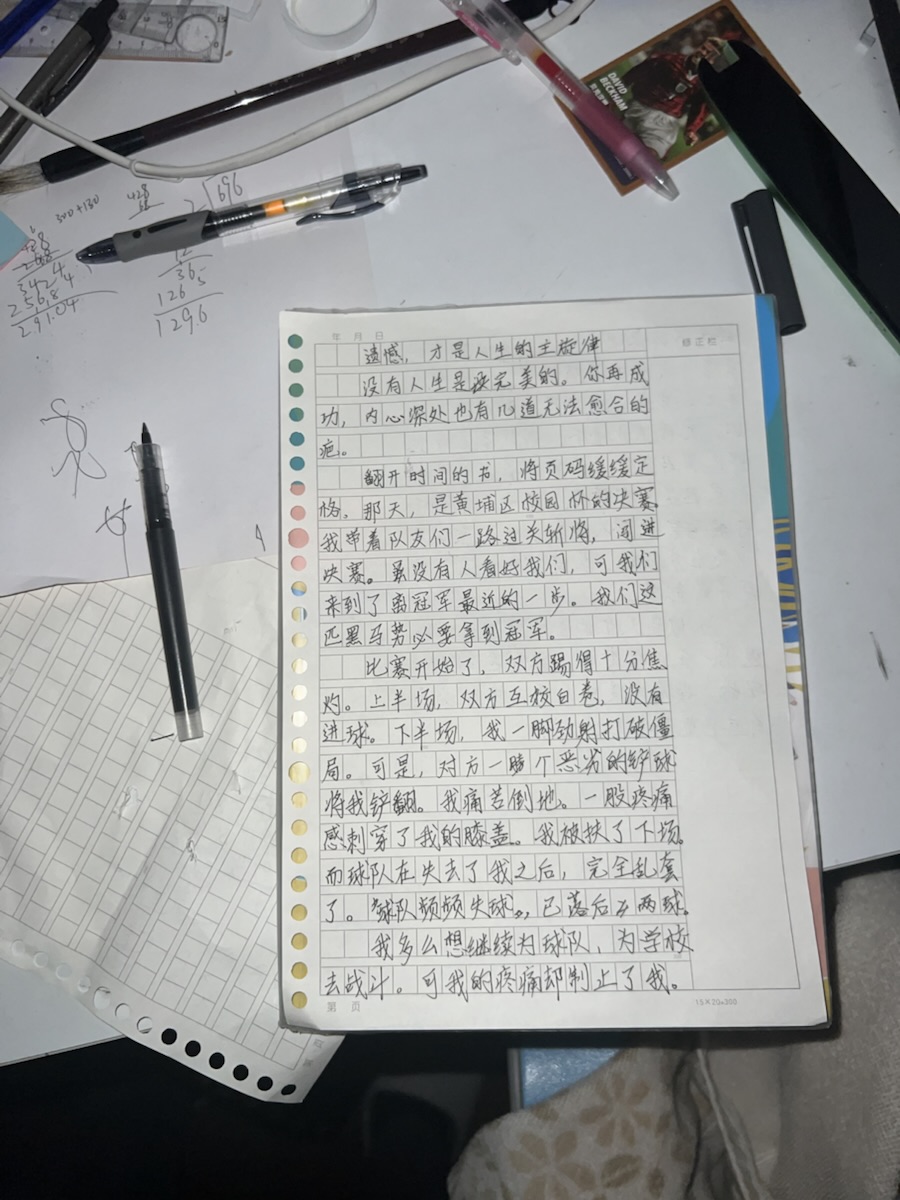 DAVID
BECKHAM
300+130
428
68
2 696
428
3424
256.84
291.04
12
36
126
1296
年 月 日
修正栏
遗憾，才是人生的主旋律
没有人生是完美的。你再成
功，内心深处也有几道无法愈合的
疤。
翻开时间的书，将页码缓缓定
格。那天，是黄埔区校园杯的决赛。
我带着队友们一路过关斩将，闯进
决赛。虽没有人看好我们，可我们
来到了离冠军最近的一步。我们这
匹黑马势必要拿到冠军。
比赛开始了，双方踢得十分焦
灼。上半场，双方互校白卷，没有
进球。下半场，我一脚劲射打破僵
局。可是，对方一个恶劣的铲球
将我铲翻。我痛苦倒地。一股疼痛
感刺穿了我的膝盖。我被扶了下场。
而球队在失去了我之后，完全乱套
了。球队频频失球，已落后两球。
我多么想继续为球队，为学校
去战斗。可我的疼痛却制止了我。
第 页
15×20=300